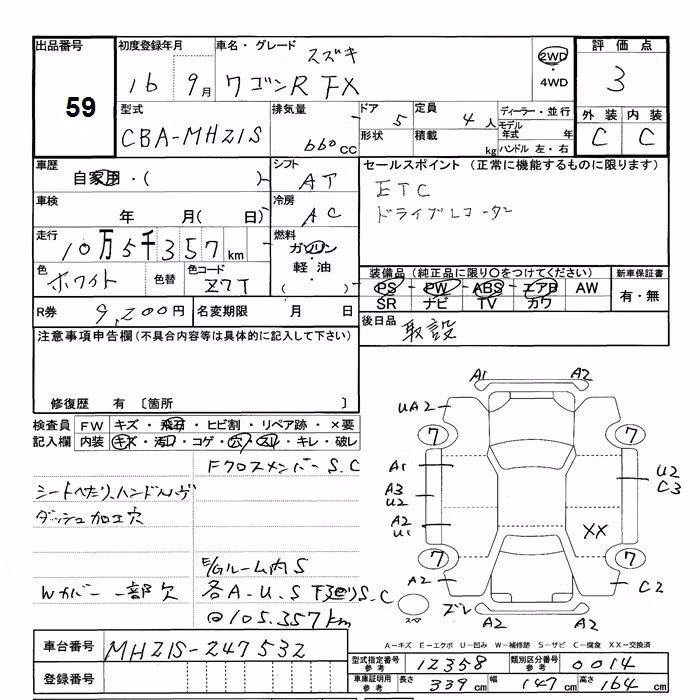 出品番号 初度登録年月 車名・グレード スズキ 2WD 評価点
59 16年 9月 ワゴンR FX ・4WD 3
型式 排気量 ドア 5 定員 4人 ディーラー・並行 外装 内装
CBA-MH21S 660cc 形状 積載 kg モデル年式 年 ハンドル 左・右 C C
車歴 シフト セールスポイント (正常に機能するものに限ります)
自家用・( ) AT ETC
車検 冷房 ドライブレコーダー
年 月( 日) AC
走行 燃料
10万5千357km ガソリン・軽油・( )
色 色替 色コード 装備品 (純正品に限り○をつけてください) 新車保証書
ホワイト Z7T PS - PW - ABS - エアB AW 有・無
SR ナビ TV カワ
R券 9,200円 名変期限 月 日 後日品 取説
注意事項申告欄(不具合内容等は具体的に記入して下さい)
修復歴 有 〔箇所 〕
検査員 FW キズ・飛石・ヒビ割・リペア跡・×要
記入欄 内装 キズ・汚れ・コゲ・穴・スレ・キレ・破レ
FクロスメンバーS.C
シートへたり、ハンドルヴ
ダッシュ加工穴
E/Gルーム内S
Wカバー一部欠 各A-U.S 下廻りS.C
@105.357km
A1 A2
UA2
7 7
A1 U2
C3
A3
U2
A2
U1 XX
7 7
A2 C2
スペア ズレ A2 A2
A-キズ E-エクボ U-凹み W-補修跡 S-サビ C-腐食 XX-交換済
車台番号 MH21S-247532
型式指定番号 参考 12358 類別区分番号 参考 0014
登録番号
車庫証明用 参考 長さ 339cm 幅 147cm 高さ 164cm